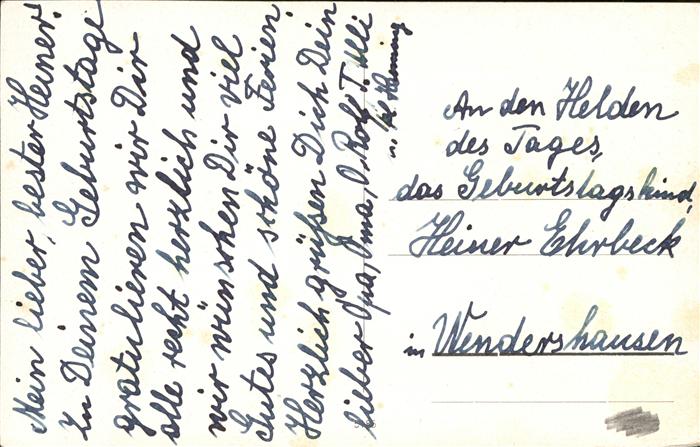 Mein lieber, bester Heiner!
Zu Deinem Geburtstage
gratulieren wir Dir
alle recht herzlich und
wir wünschen Dir viel
Gutes und schöne Ferien.
Herzlich grüßen Dich Dein
lieber Opa, Oma, O. Rolf, T. Ulli
u. kl. Henning
An den Helden
des Tages,
das Geburtstagskind,
Heiner Ehrbeck
in Wendershausen